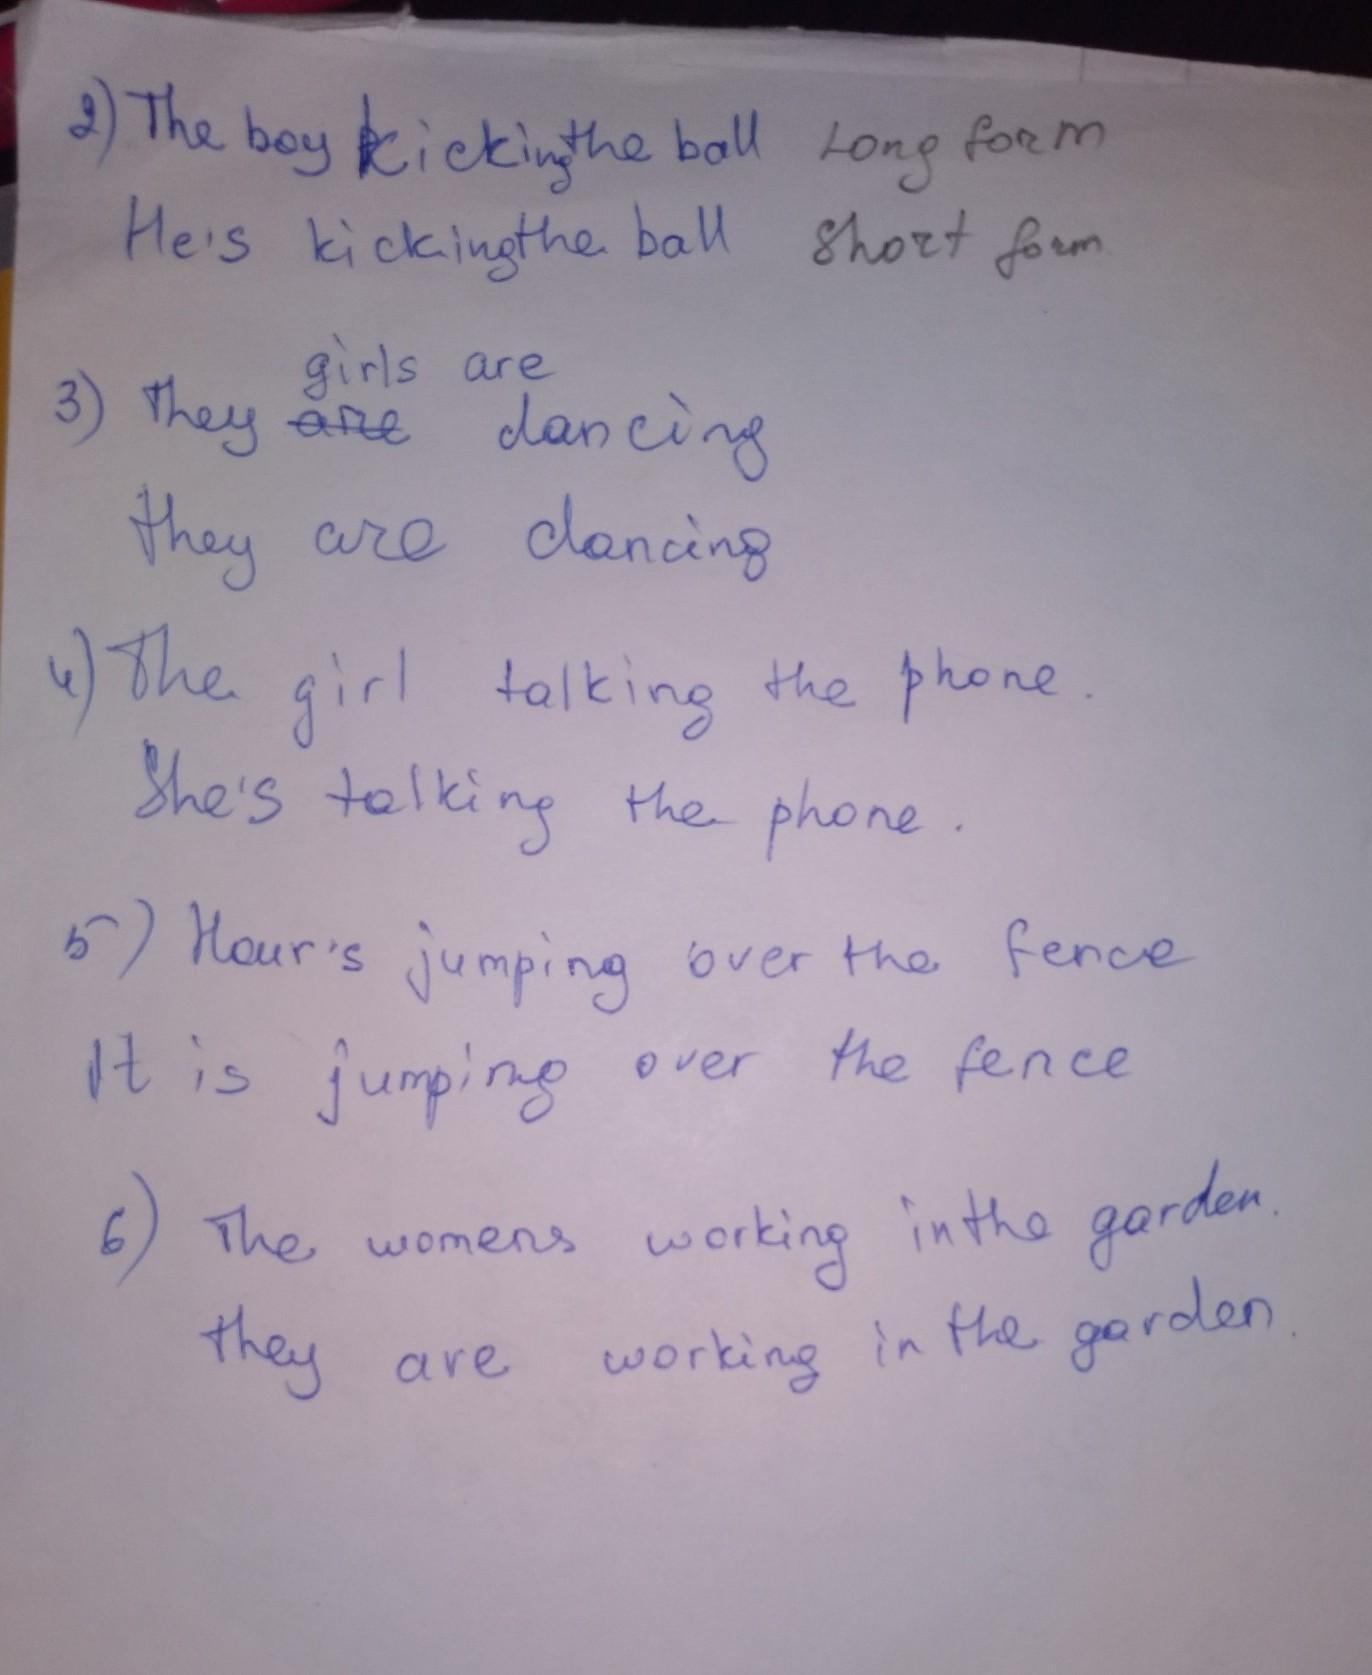 2) The boy kickingthe ball Long form
He's kickingthe ball Short form
girls are
3) They are dancing
they are dancing
4) The girl talking the phone.
She's talking the phone.
5) Hour's jumping over the fence
It is jumping over the fence
6) The womens working inthe garden.
they are working in the garden.